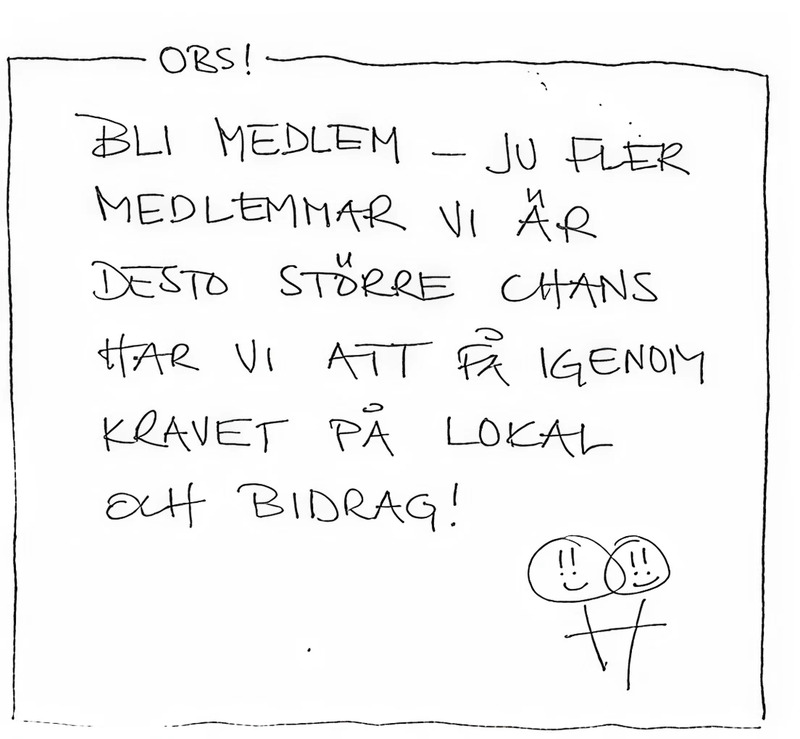 OBS!
BLI MEDLEM – JU FLER
MEDLEMMAR VI ÄR
DESTO STÖRRE CHANS
HAR VI ATT FÅ IGENOM
KRAVET PÅ LOKAL
OCH BIDRAG!